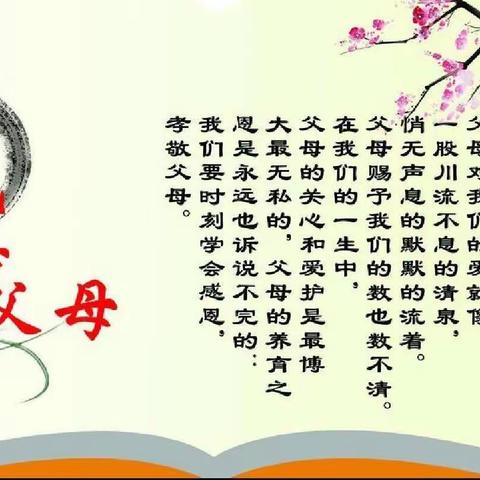 父母对我们的爱就像
一股川流不息的清泉，
悄无声息的默默的流着。
父母赐予我们的数也数不清。
在我们的一生中，
父母的关心和爱护是最博
大最无私的，父母的养育之
恩是永远也诉说不完的：
我们要时刻学会感恩，
孝敬父母。
父母